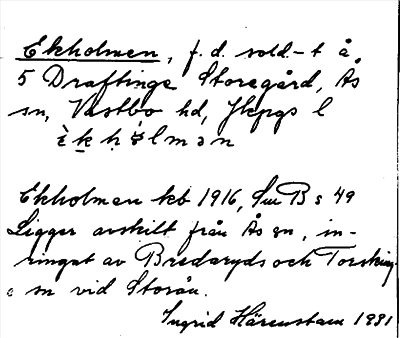 Ekholmen, f.d. sold.-t å
5 Draftinge Storegård, Ås
sn, Västbo hd, Jkpgs l
è k h ø l m ə n
Ekholmen kb 1916, Sm B s 49
Ligger avskilt från Ås sn, in-
ringat av Bredaryds och Torskinge
sn vid Storån.
Ingrid Härenstam 1931